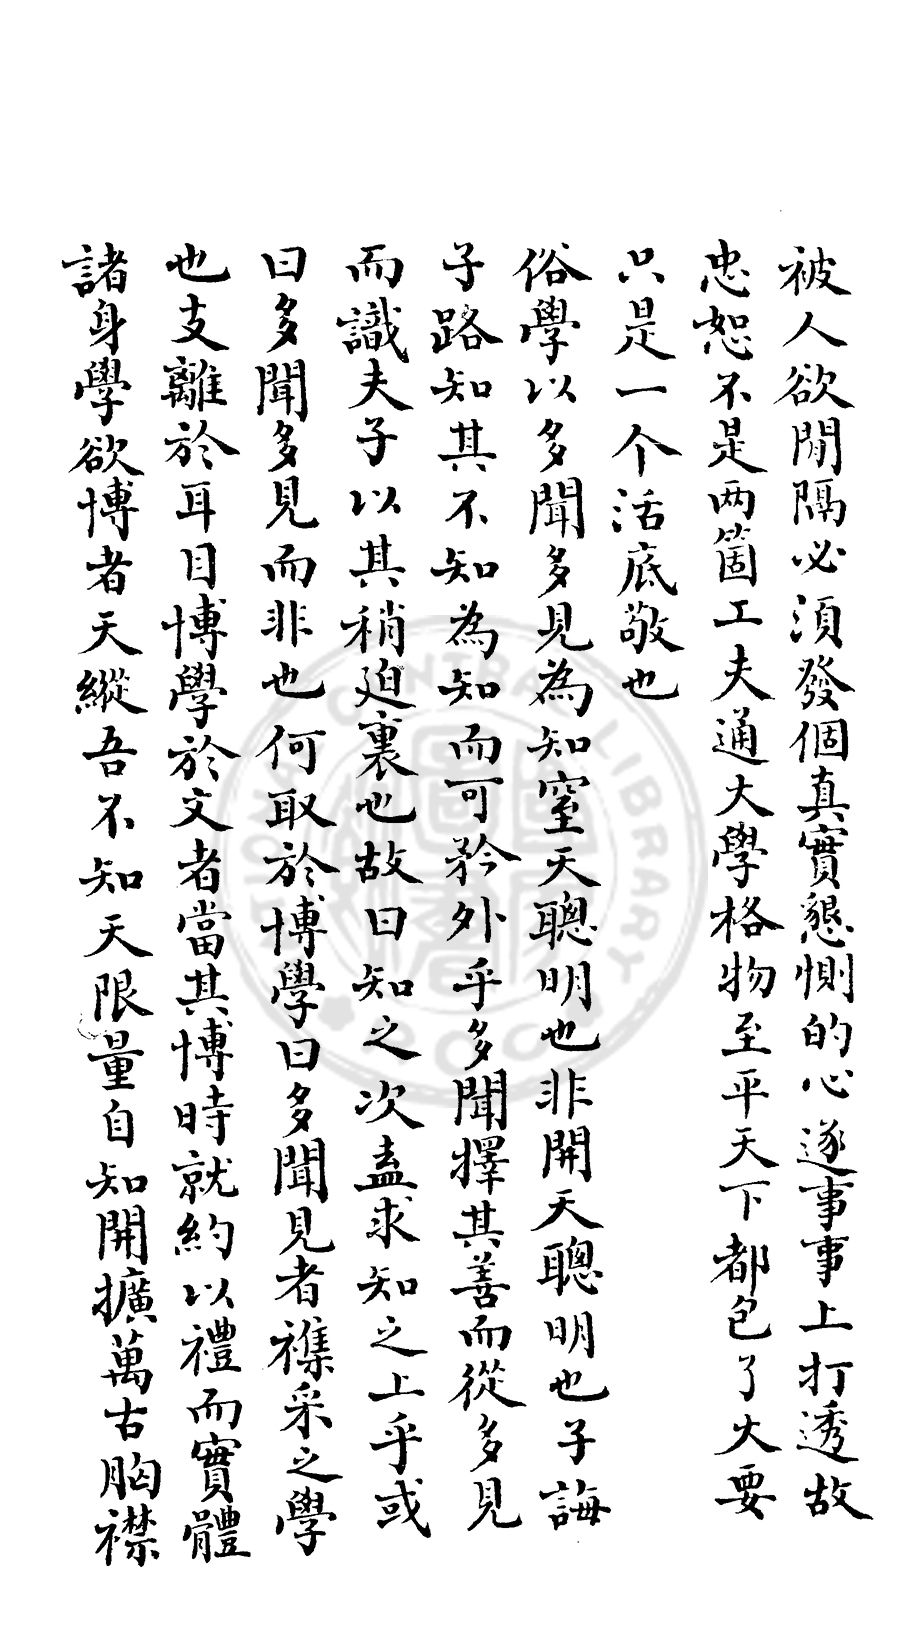 被人欲閒隔必湏發個真實懇惻的心遂事事上打透故
忠恕不是两箇工夫通大學格物至平天下都包了大要
只是一个活底敬也
俗學以多聞多見為知窒天聰明也非開天聰明也子誨
子路知其不知為知而可矜外乎多聞擇其善而從多見
而識夫子以其稍廹裏也故曰知之次盍求知之上乎或
曰多聞多見而非也何取於博學曰多聞見者襍采之學
也支離於耳目博學於文者當其博時就約以禮而實體
諸身學欲博者天縱吾不知天限量自知開擴萬古胸襟
CENTRAL LIBRARY